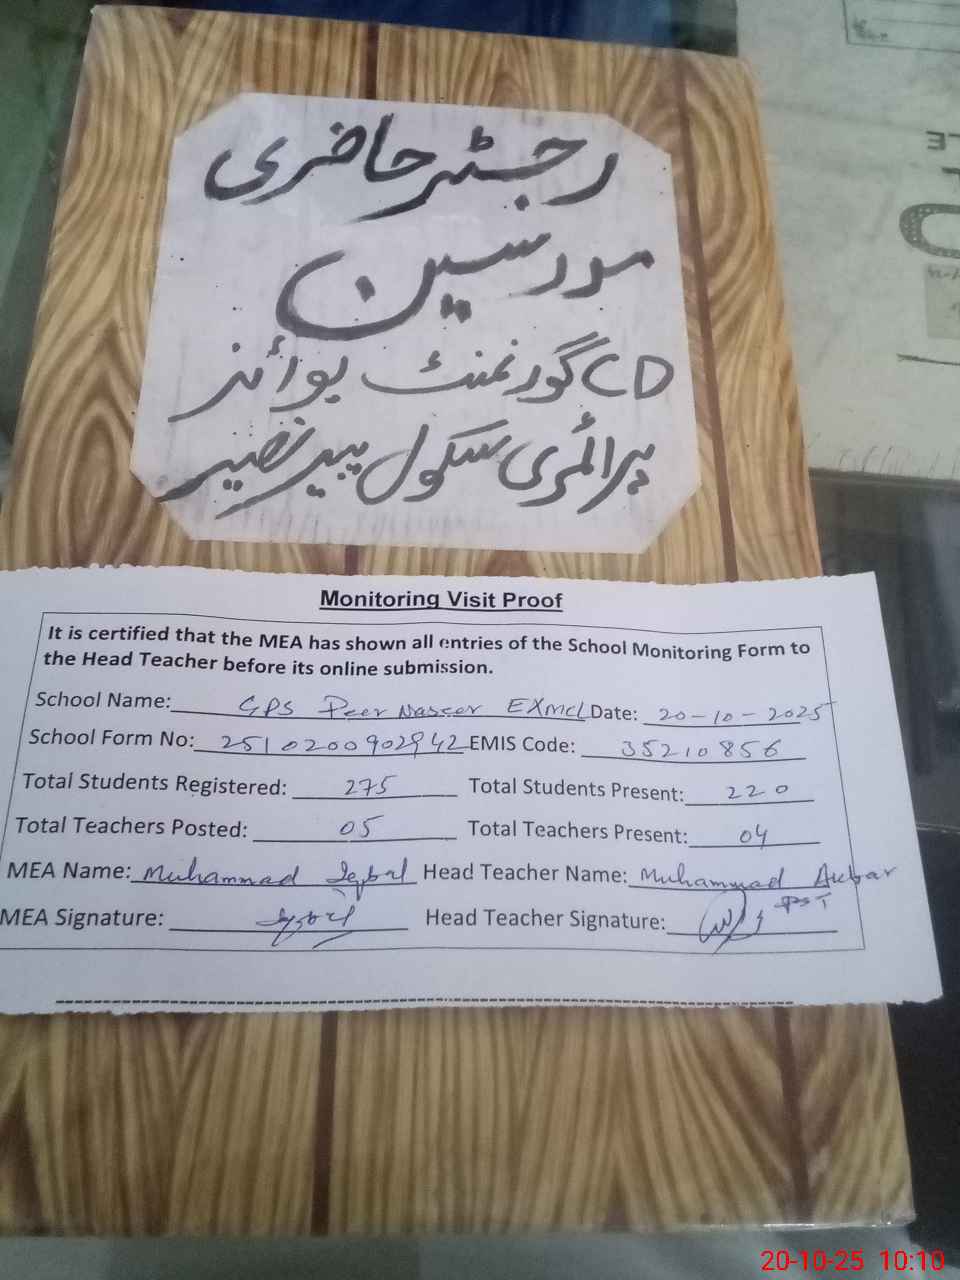 رجسٹر حاضری
مدرسین
CD گورنمنٹ بوائز
پرائمری سکول پیر نصیر
Monitoring Visit Proof
It is certified that the MEA has shown all entries of the School Monitoring Form to
the Head Teacher before its online submission.
School Name: GPS Peer Naseer EXMCL Date: 20-10-2025
School Form No: 2510200902942 EMIS Code: 35210856
Total Students Registered: 275 Total Students Present: 220
Total Teachers Posted: 05 Total Teachers Present: 04
MEA Name: Muhammad Iqbal Head Teacher Name: Muhammad Akbar
MEA Signature: Head Teacher Signature: PST
20-10-25 10:10